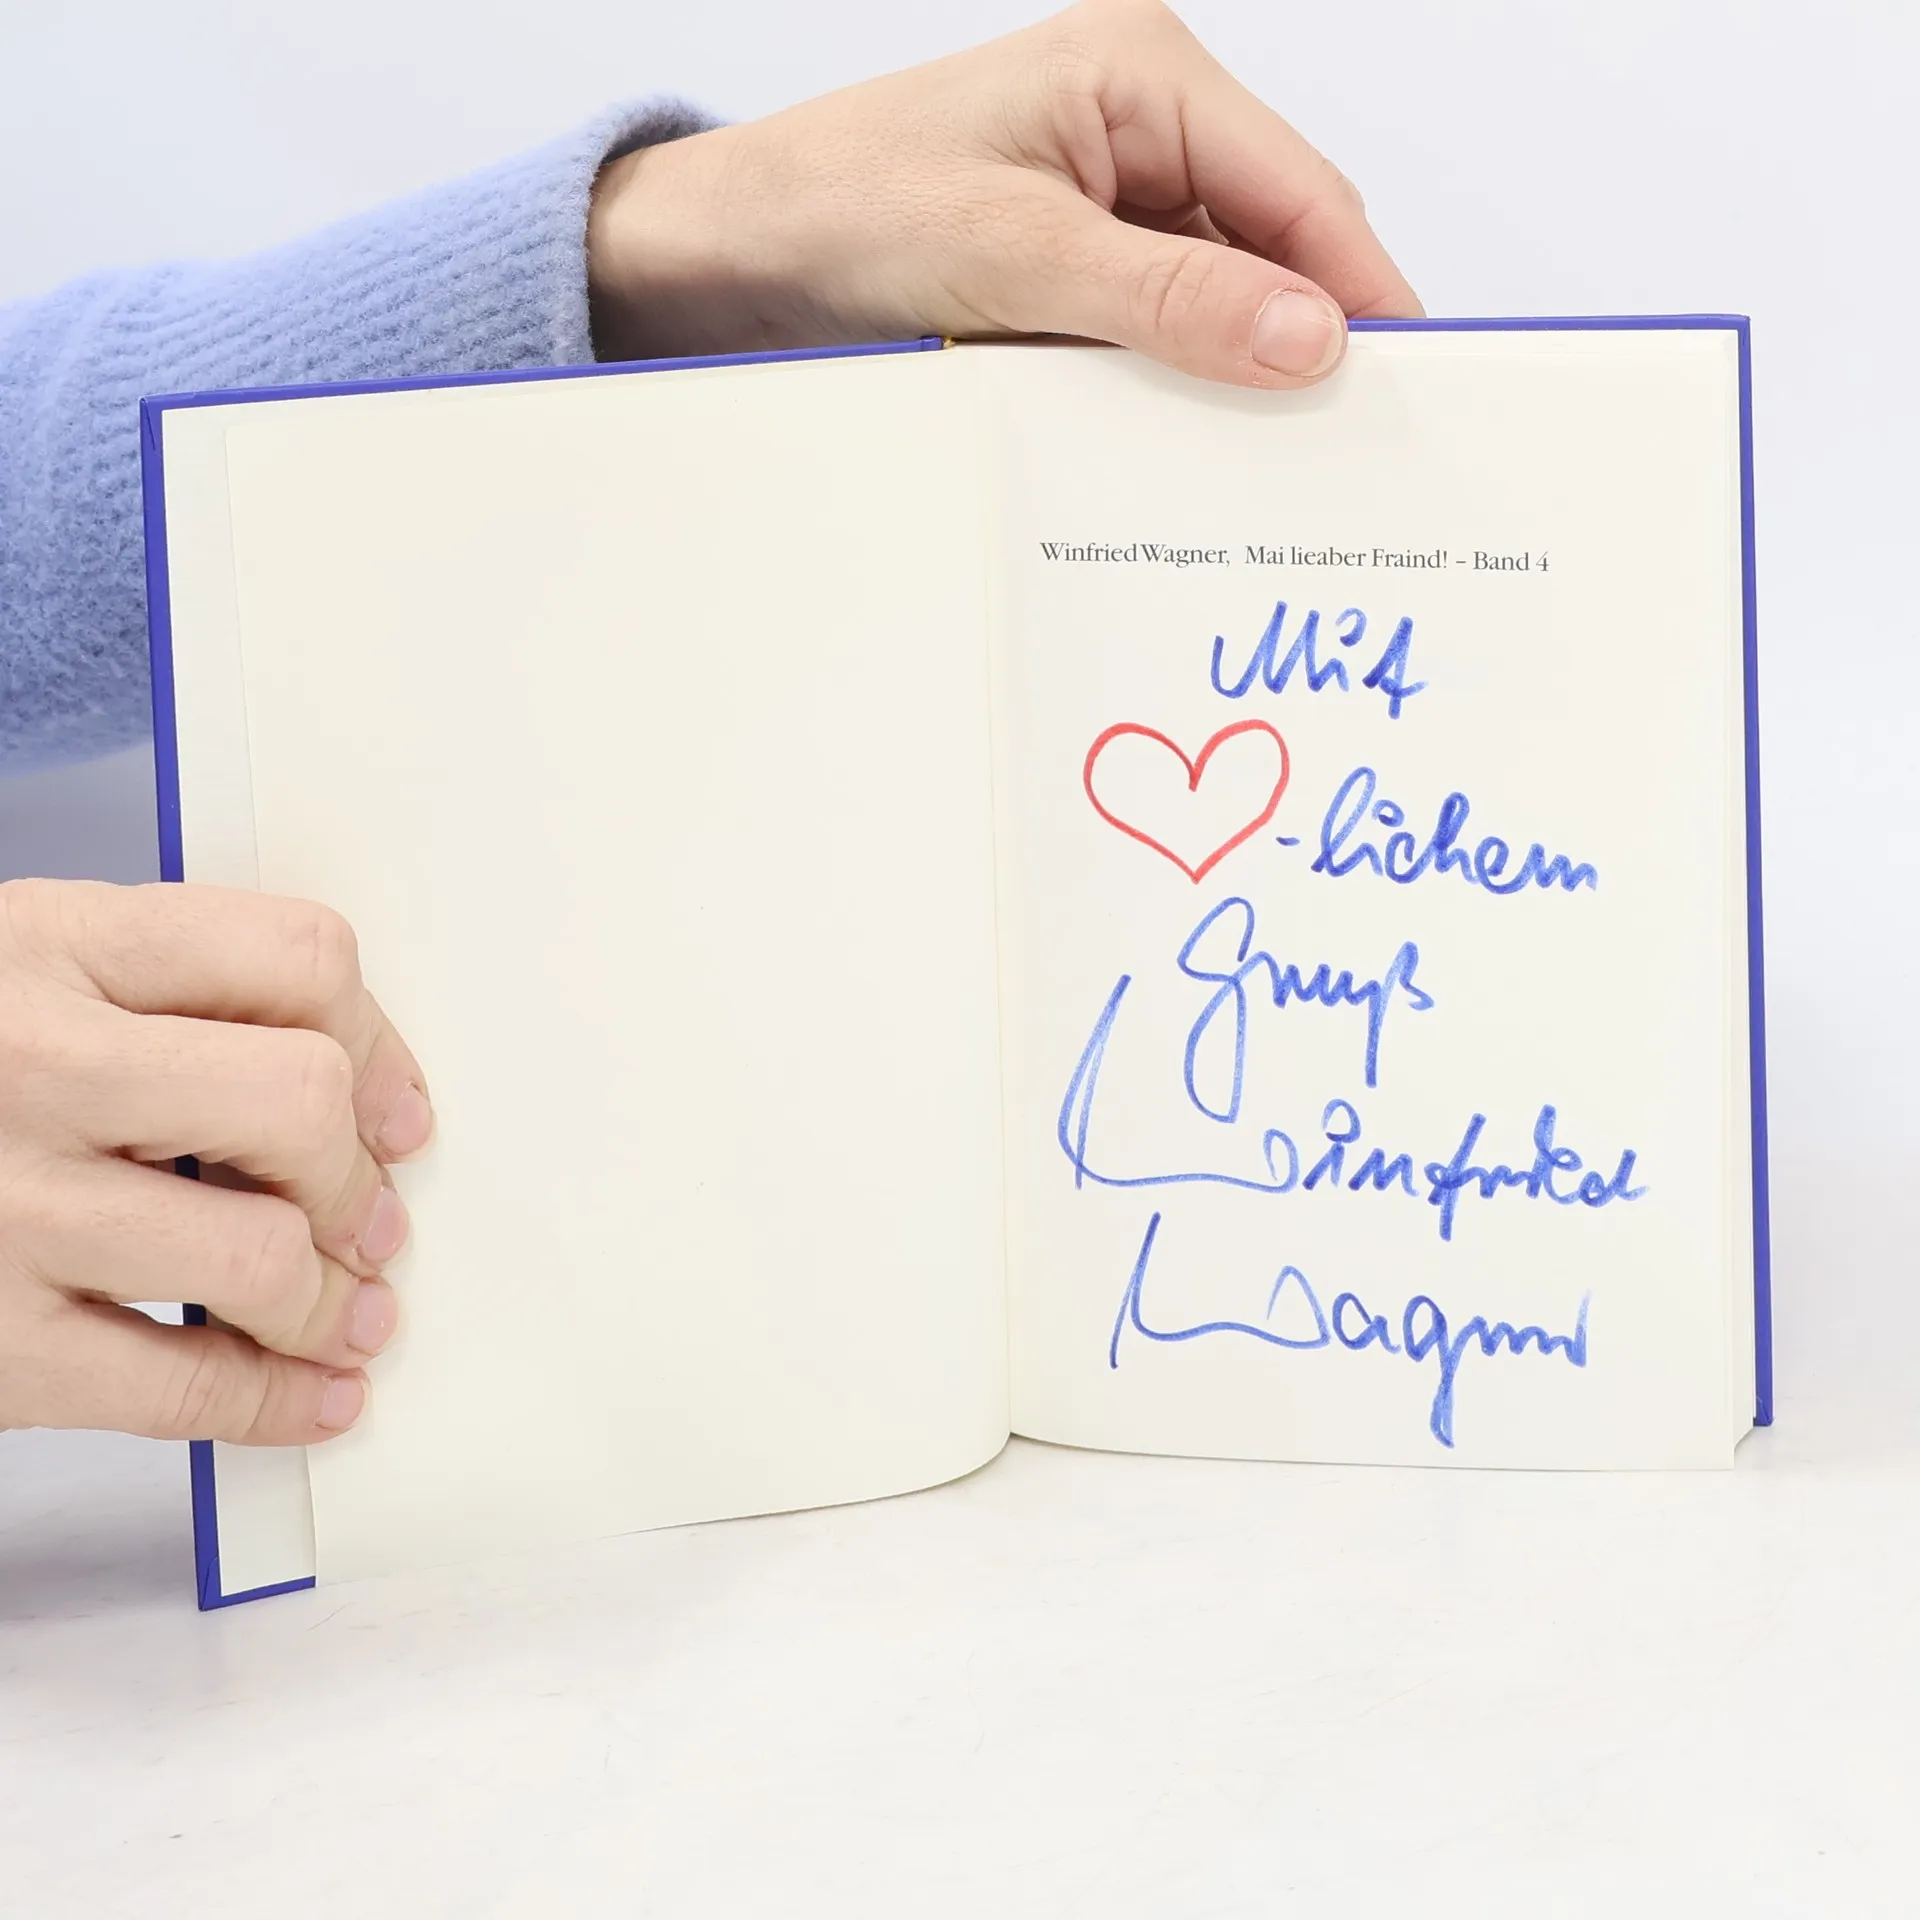 Winfried Wagner, Mai lieaber Fraind! – Band 4
Mit
♥-lichem
Gruß
Winfried
Wagner